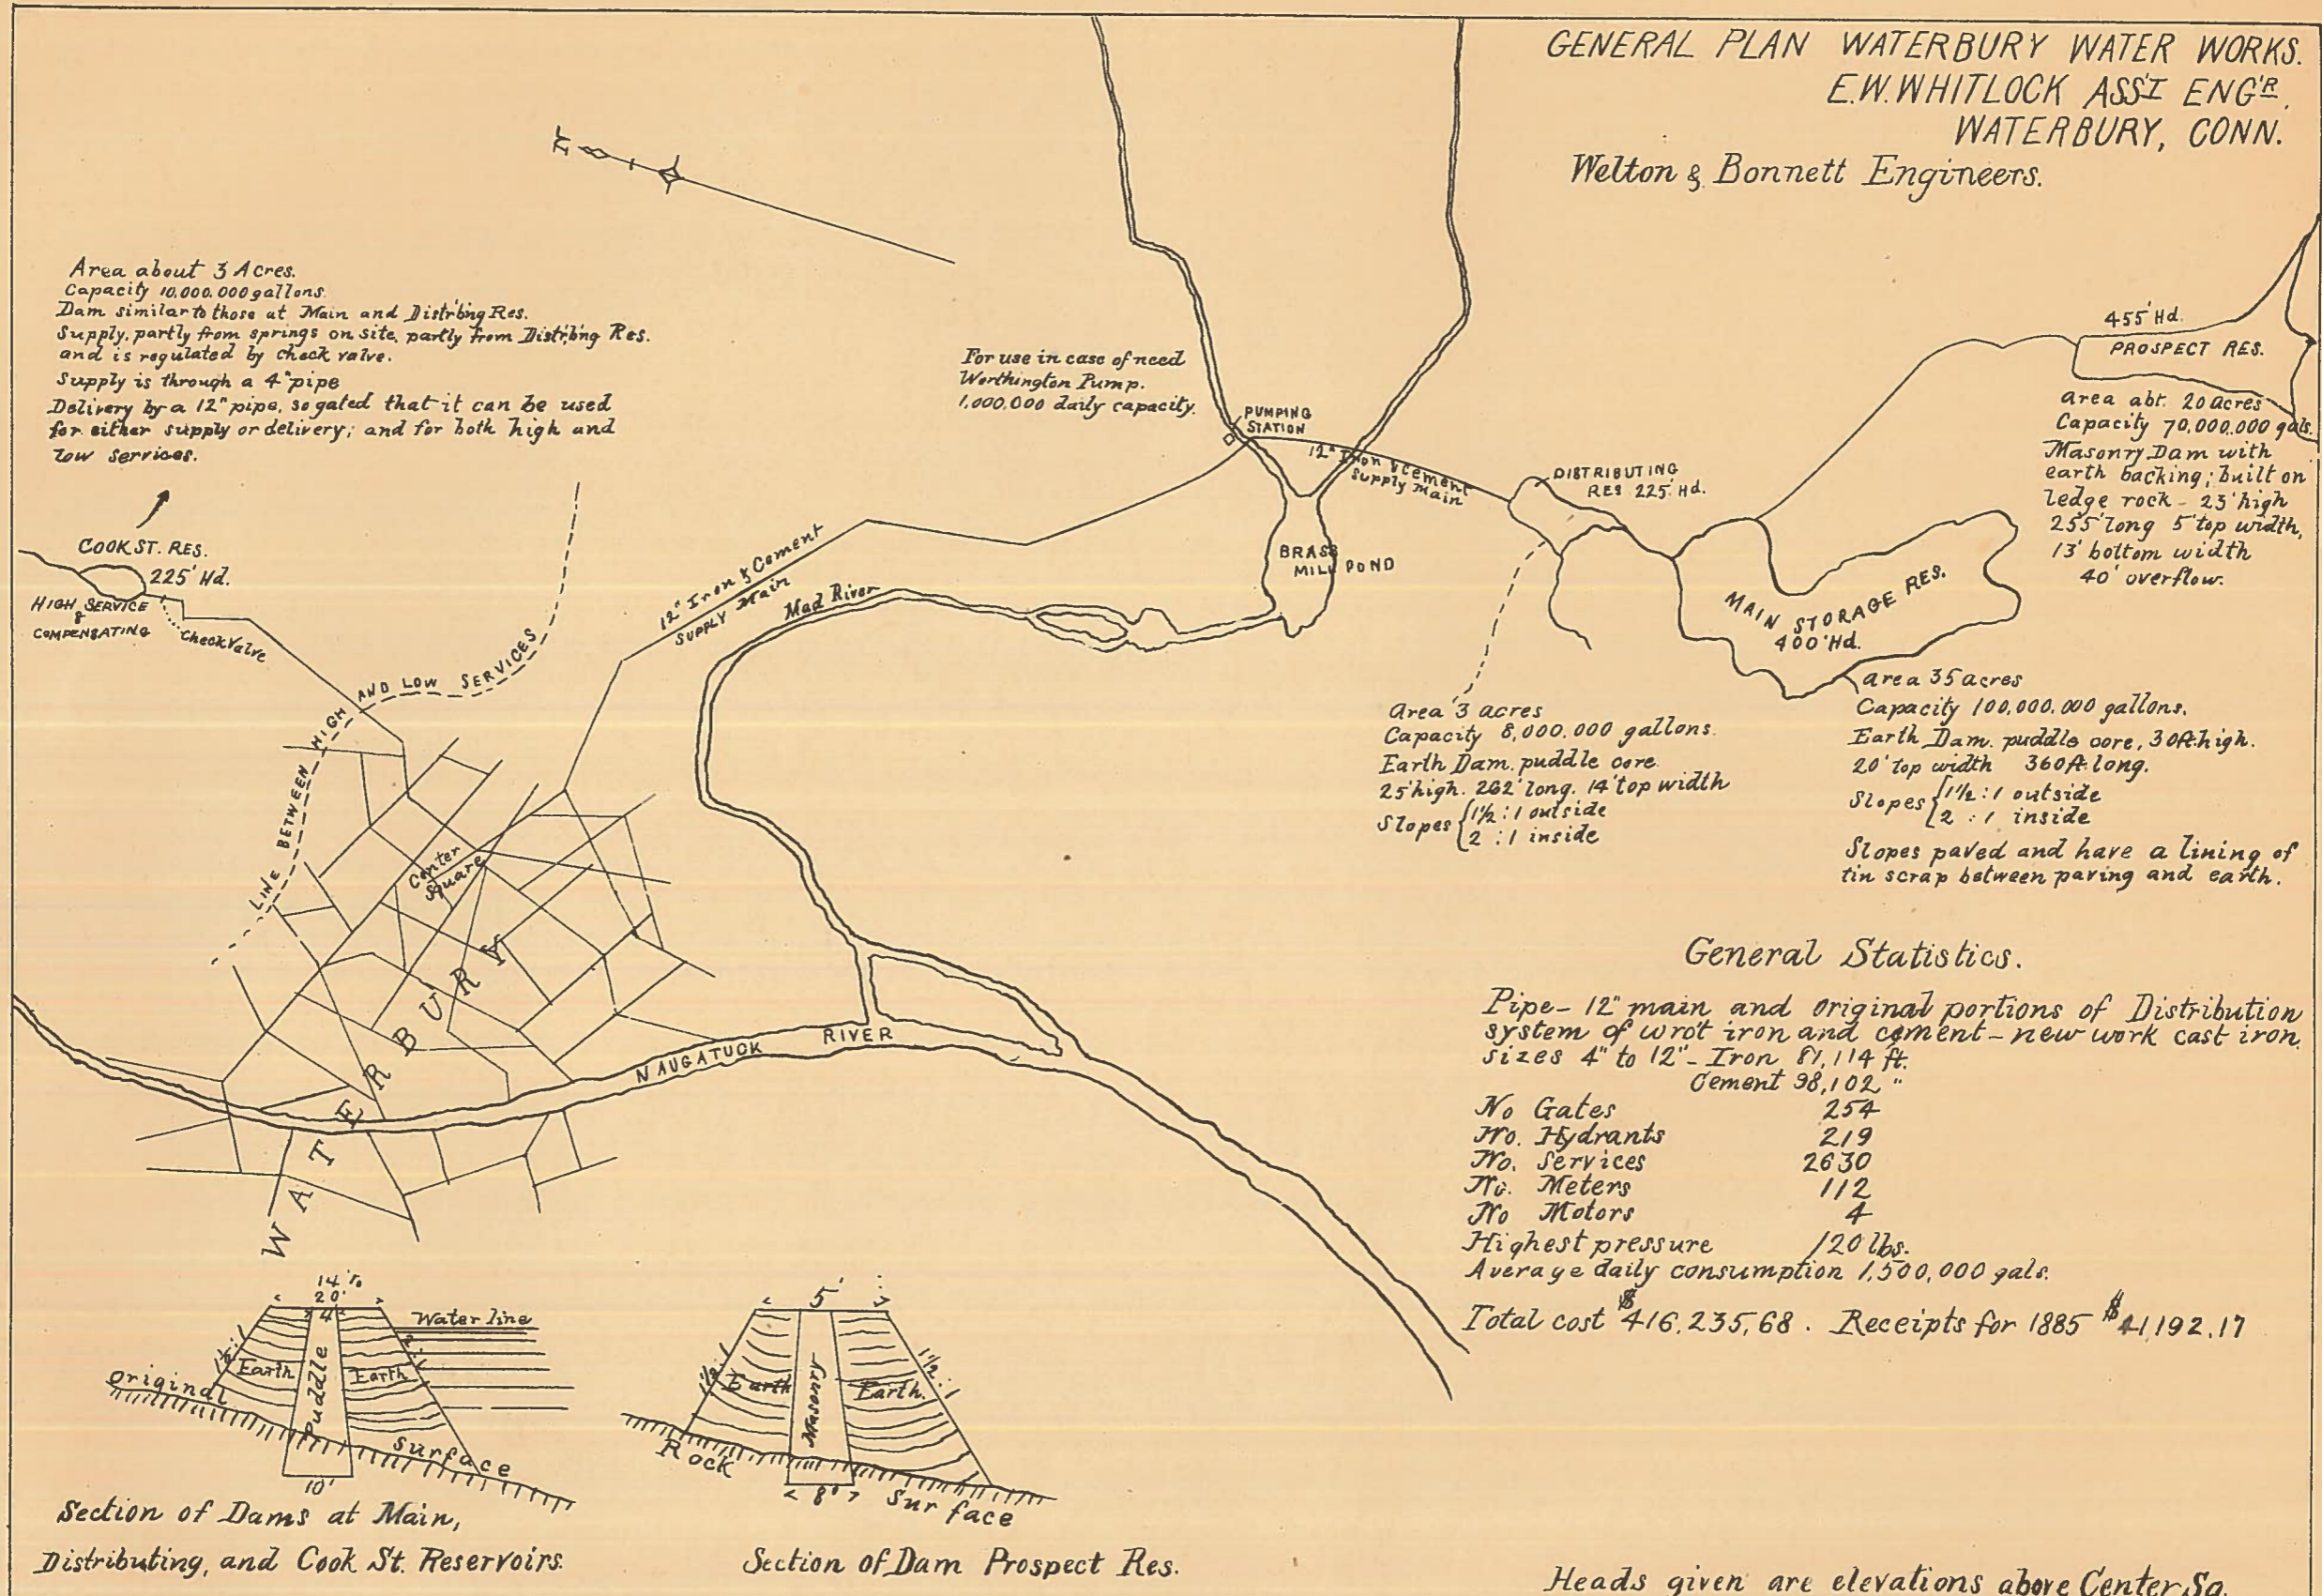 GENERAL PLAN WATERBURY WATER WORKS.
E.W.WHITLOCK ASS'T ENG'R.
WATERBURY, CONN.
Welton & Bonnett Engineers.
Area about 3 Acres.
Capacity 10.000.000 gallons.
Dam similar to those at Main and Distr'bng Res.
Supply, partly from springs on site, partly from Distr'b'ng Res.
and is regulated by check valve.
Supply is through a 4" pipe
Delivery by a 12" pipe, so gated that it can be used
for either supply or delivery; and for both high and
low services.
COOK ST. RES.
225' Hd.
HIGH SERVICE
&
COMPENSATING
Check Valve
LINE BETWEEN HIGH AND LOW SERVICES
For use in case of need
Worthington Pump.
1,000,000 daily capacity.
PUMPING
STATION
12" Iron & Cement
Supply Main
12" Iron & Cement
SUPPLY Main
Mad River
BRASS
MILL POND
DISTRIBUTING
RES 225' Hd.
455' Hd.
PROSPECT RES.
area abt. 20 acres
Capacity 70,000.000 gals.
Masonry Dam with
earth backing; built on
ledge rock - 23' high
255' long 5' top width,
13' bottom width
40' overflow.
MAIN STORAGE RES.
400' Hd.
Area 3 acres
Capacity 8,000.000 gallons.
Earth Dam. puddle core
25' high. 262' long. 14' top width
Slopes { 1½ : 1 outside
2 : 1 inside
area 35 acres
Capacity 100,000.000 gallons.
Earth Dam. puddle core, 30ft. high.
20' top width 360ft. long.
Slopes { 1½ : 1 outside
2 : 1 inside
Slopes paved and have a lining of
tin scrap between paving and earth.
Center
Square
WATERBURY
NAUGATUCK RIVER
General Statistics.
Pipe- 12" main and original portions of Distribution
system of wrot iron and cement - new work cast iron.
sizes 4" to 12" - Iron 81,114 ft.
Cement 98,102 "
No Gates 254
No. Hydrants 219
No. Services 2630
No. Meters 112
No Motors 4
Highest pressure 120 lbs.
Average daily consumption 1,500,000 gals.
Total cost $416,235,68. Receipts for 1885 $41,192.17
14' to
20'
4'
Water line
1½ : 1
2 : 1
Earth
Puddle
Earth
Original
Surface
10'
Section of Dams at Main,
Distributing, and Cook St. Reservoirs.
5'
1½ : 1
1½ : 1
Earth
Masonry
Earth.
Rock
Surface
8'
Section of Dam Prospect Res.
Heads given are elevations above Center Sq.